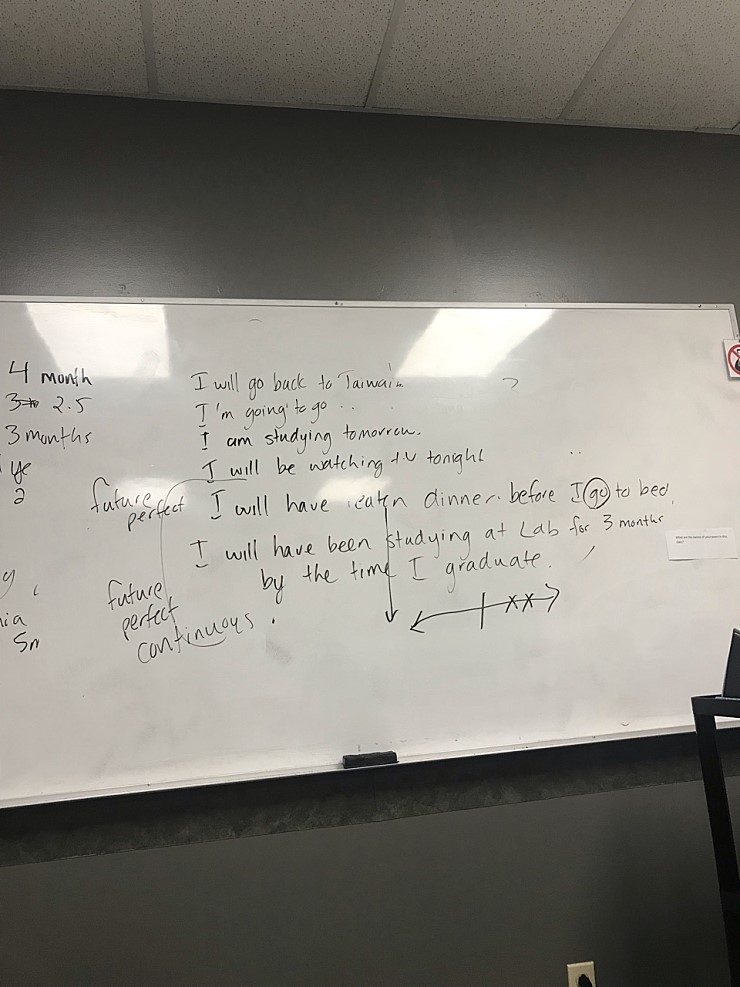 4 month
3 2.5
3 months
ye
2
I will go back to Taiwain.
I'm going to go ..
I am studying tomorrow.
I will be watching TV tonight
future perfect
I will have eaten dinner. before I go to bed.
I will have been studying at Lab for 3 months
by the time I graduate.
future
perfect
continuous.
y,
nia
Sm